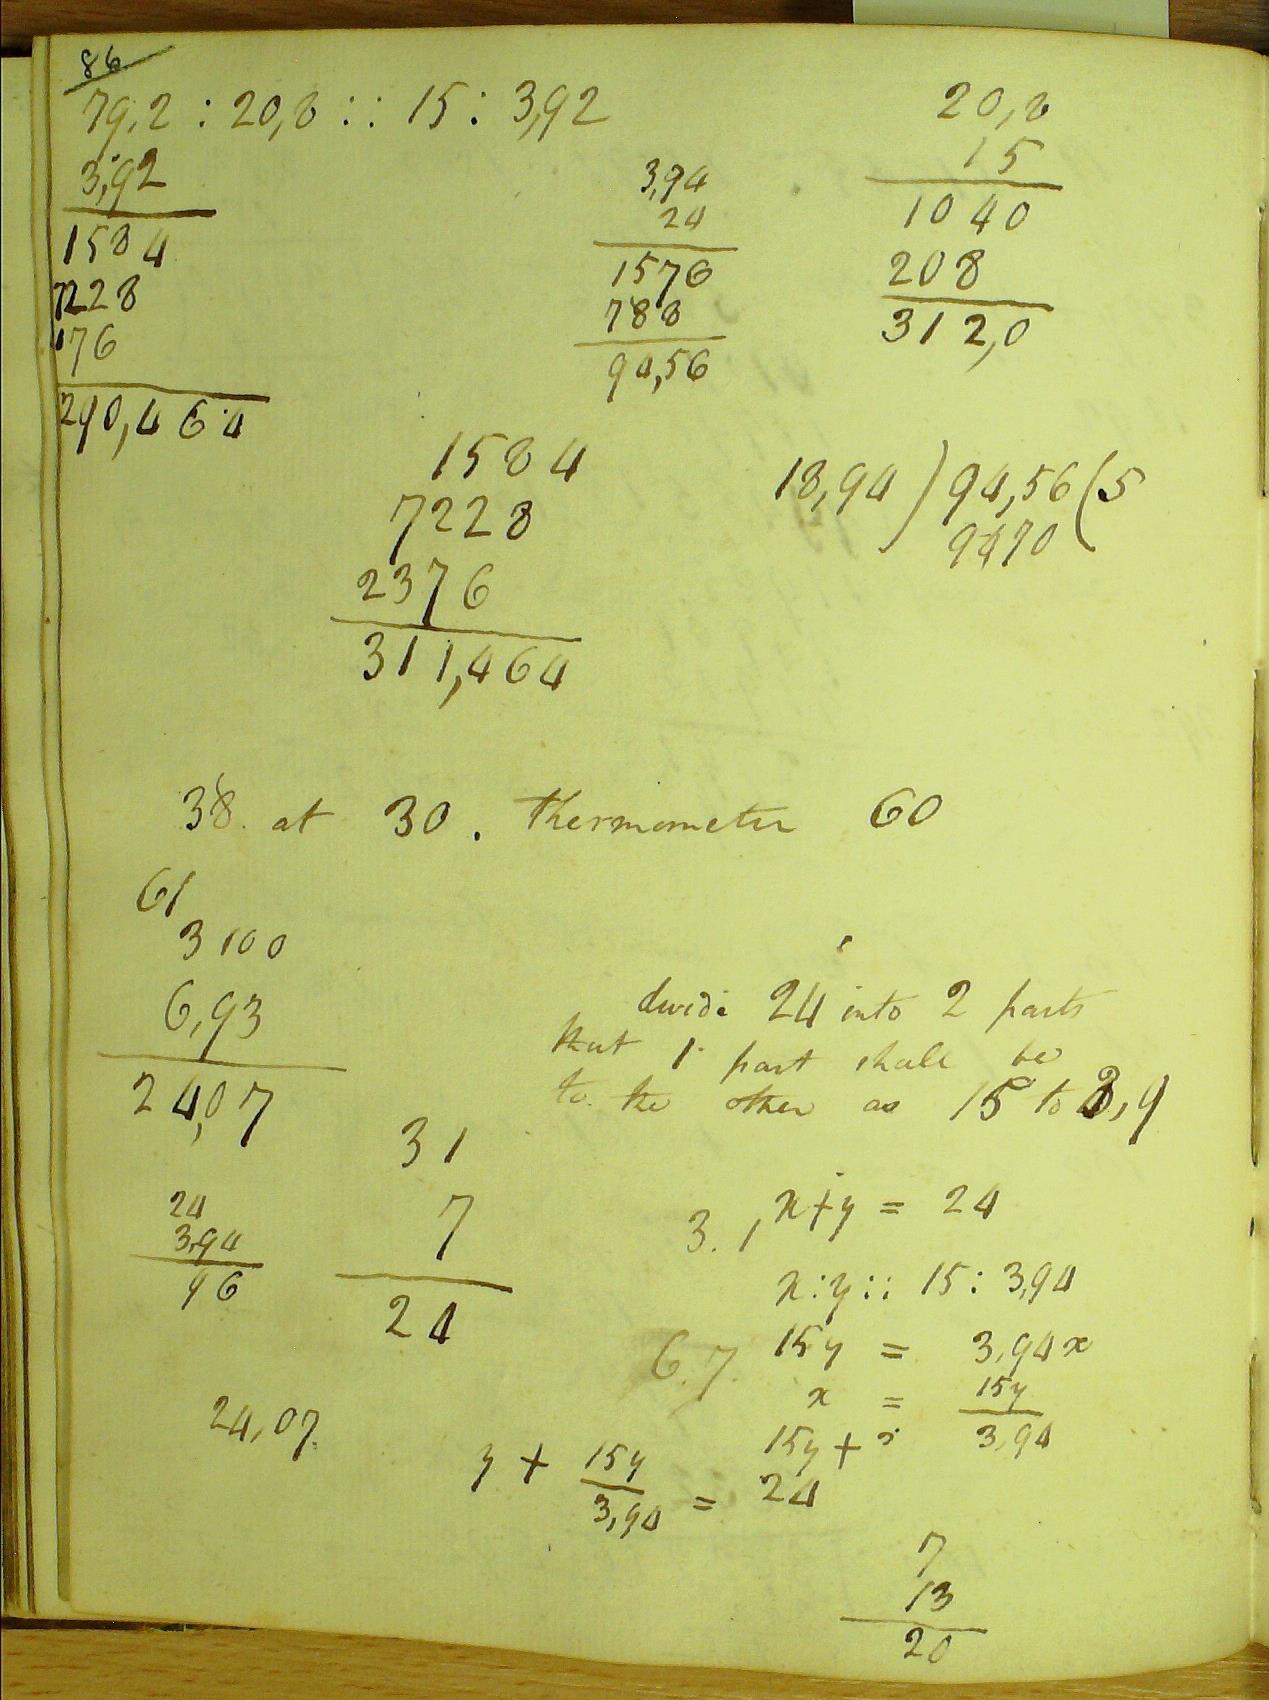 86
79,2 : 20,8 :: 15 : 3,92
3,92
1584
7228
176
290,464
3,94
24
1576
788
94,56
20,8
15
1040
208
312,0
1584
7228
2376
311,464
18,94 ) 94,56 ( 5
9470
38. at 30. thermometer 60
61
3100
6,93
24,07
31
7
24
24
3,94
96
24,07.
divide 24 into 2 parts
that 1 part shall be
to the other as 15 to 3,9
3. 1
x + y = 24
x : y :: 15 : 3,94
6.7.
15y = 3,94x
x = 15y
3,94
15y +
y + 15y
3,94
= 24
7
13
20